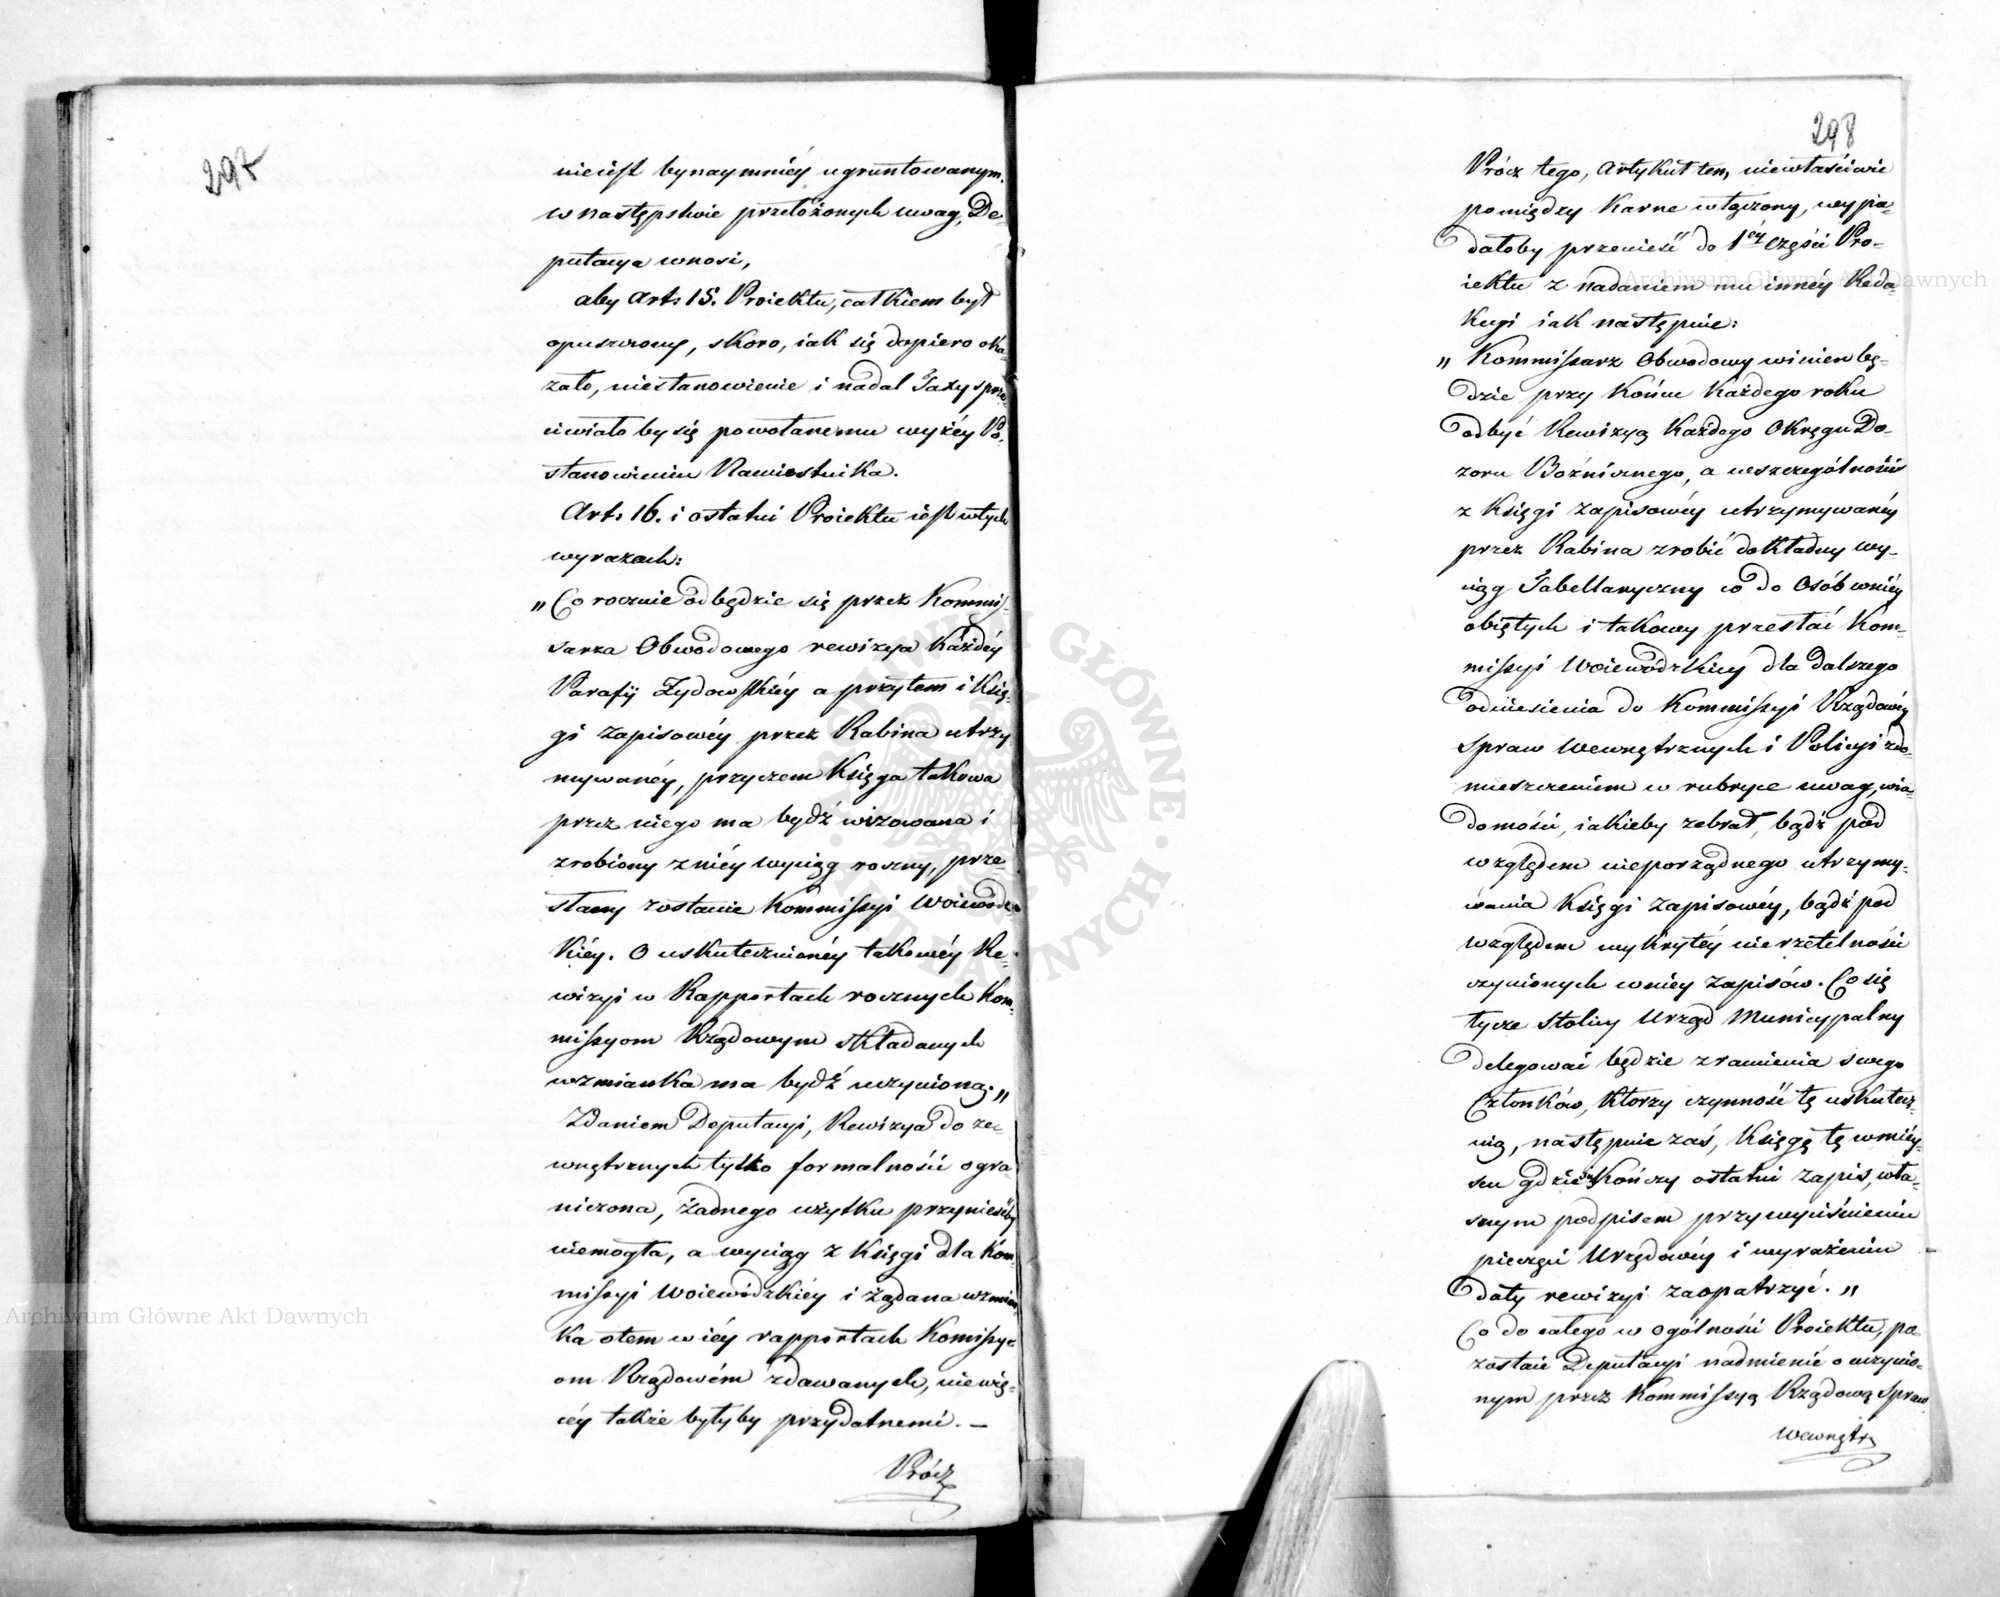 297
nieiest bynaymniéy ugruntowanym.
w następstwie przełożonych uwag, De-
putacya wnosi,
aby Art: 15. Proiektu, całkiem był
opuszczony, skoro, iak się dopiero oka-
zało, niestanowienie i nadal Taxy sprze-
ciwiało by się powołanemu wyżéy Po-
stanowieniu Namiestnika.
Art: 16. i ostatni Proiektu iest w tych
wyrazach:
„ Co rocznie odbędzie się przez Kommis-
sarza Obwodowego rewizya Każdéy
Parafij Żydowskiéy a przytem i Księ-
gi zapisowéy przez Rabina utrzy
mywanéy, przyczem Księga takowa
przez niego ma bydź wizowana i
zrobiony z niéy wyciąg roczny, prze
słany zostanie Kommissyi Woiewódz-
kiéy. O uskutecznionéy takowéy Re-
wizyi w Rapportach rocznych Kom-
missyom Rządowym składanych
wzmianka ma bydź uczynioną. „
Zdaniem Deputacyi, Rewizya do ze-
wnętrznych tylko formalności ogra
niczona, żadnego użytku przynieśćby
niemogła, a wyciąg z Księgi dla Kom-
missyi Woiewódzkiéy i żądana wzmian
ka o tem w iéy rapportach Komissy-
om Rządowém zdawanych, niewię-
céy także byłyby przydatnemi. —
Prócz
298
Prócz tego, Artykuł ten, niewłaściwie
pomiędzy Karne włączony, wypa-
dałoby przenieść do 1ey części Pro-
iektu z nadaniem mu innéy Reda-
kcyi iak następuie:
„ Kommissarz Obwodowy winien bę-
dzie przy Końcu Każdego roku
odbyć Rewizyą Każdego Okręgu Do-
zoru Bożnicznego, a wszczególności
z Księgi zapisowéy utrzymywanéy
przez Rabina zrobić dokładny wy-
ciąg Tabellaryczny co do Osób wniéy
obiętych i takowy przesłać Kom-
missyi Woiewódzkiéy dla dalszego
odniesienia do Kommissyi Rządowéy
Spraw Wewnętrznych i Policyi z do-
mieszczeniem w rubryce uwag, wia-
domości, iakieby zebrał, bądź pod
względem nieporządnego utrzymy-
wania Księgi zapisowéy, bądź pod
względem wykrytéy nierzetelności
czynionych wniéy zapisów. Co się
tycze Stolicy Urząd Municypalny
delegować będzie z ramienia swego
Członków, Którzy czynność tę uskutecz-
nią, następnie zaś, Księgę tę w miéy-
scu gdzie się Kończy ostatni zapis, wła-
snym podpisem przy wyciśnieniu
pieczęci Urzędowéy i wyrażeniu
daty rewizyi zaopatrzyć. „
Co do całego w ogólności Proiektu, po-
zostaie Deputacyi nadmienić o uczynio-
nym przez Kommissyą Rządową Spraw
Wewnętrz
Archiwum Główne Akt Dawnych
Archiwum Główne Akt Dawnych
ARCHIWUM GŁÓWNE AKT DAWNYCH